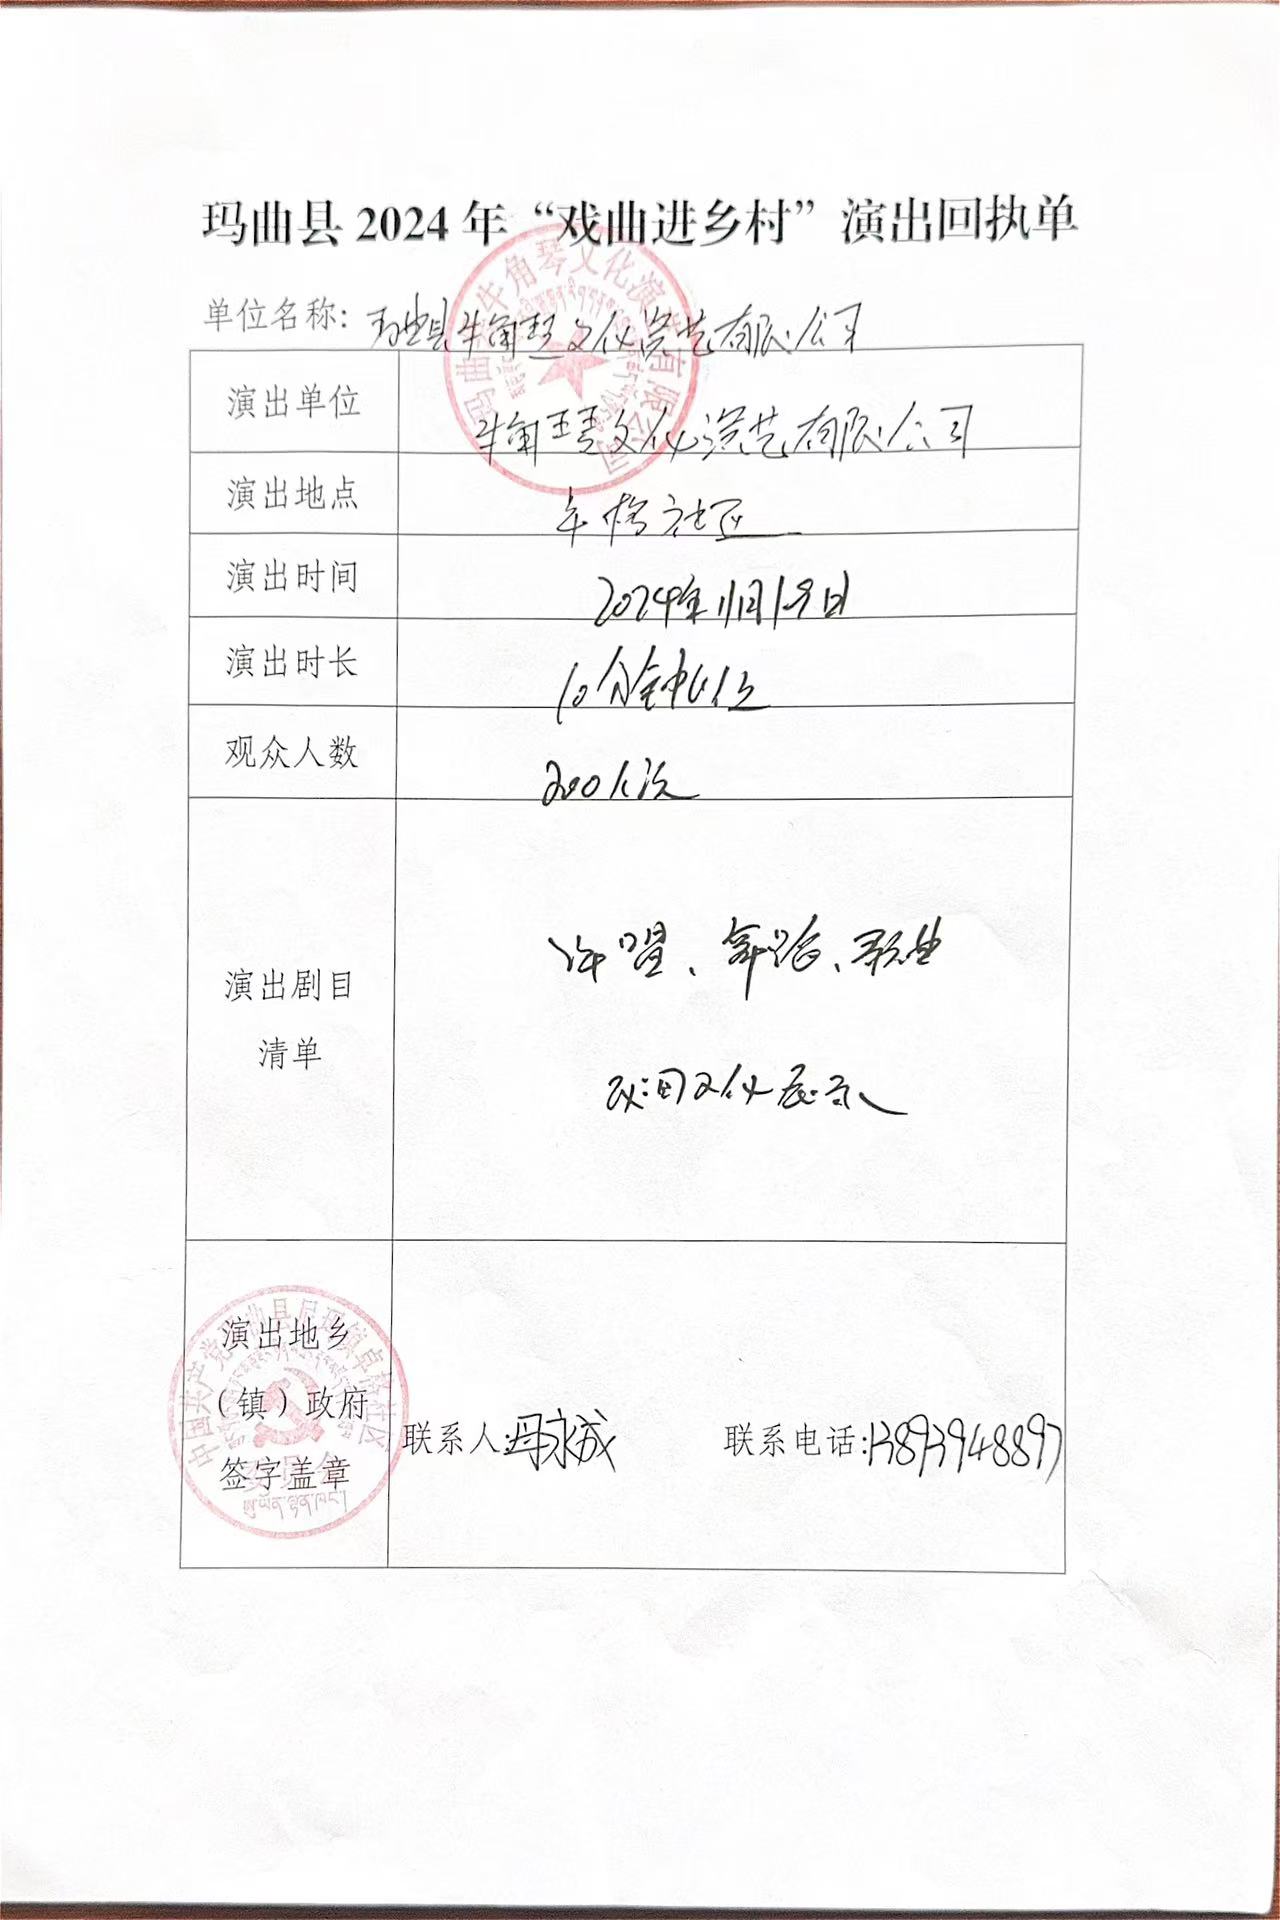 玛曲县 2024 年“戏曲进乡村”演出回执单
单位名称: 玛曲县牛角琴文化演艺有限公司
演出单位 牛角琴文化演艺有限公司
演出地点 社区
演出时间 2024年11月19日
演出时长 10分钟
观众人数 200人次
演出剧目
清单
文化展示
演出地乡
（镇）政府
签字盖章
联系人: 永成 联系电话: 13893948897
玛曲县牛角琴文化演艺有限公司
中国共产党玛曲县尼玛镇卓格社区